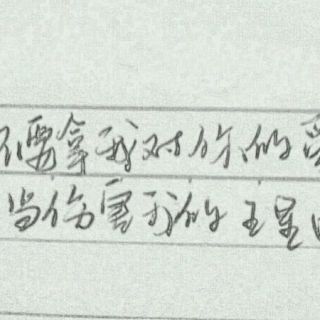 不要拿我对你的
当伤害我的王